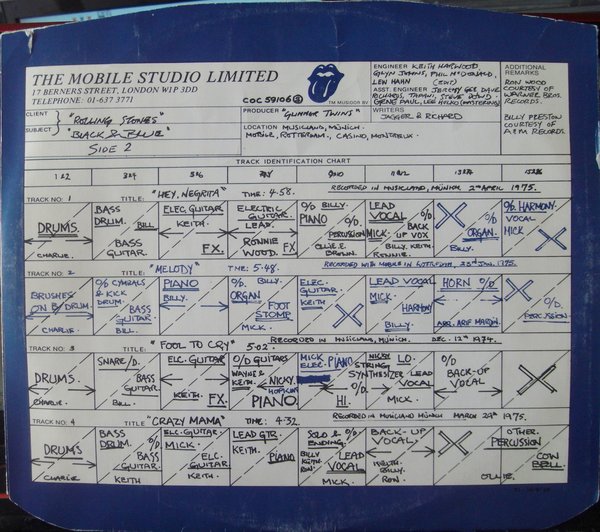 THE MOBILE STUDIO LIMITED
17 BERNERS STREET, LONDON W1P 3DD
TELEPHONE: 01-637 3771
COC 59106
ENGINEER KEITH HARWOOD,
GLYN JOHNS, PHIL McDONALD,
LEW HAHN (EDIT)
ASST. ENGINEER JEREMY GEE, DAVE
RICHARDS, TAPANI, STEVE DOWD
GENE PAUL, LEE HULKO (MASTERING)
WRITERS
JAGGER & RICHARD
ADDITIONAL
REMARKS
RON WOOD
COURTESY OF
WARNER BROS.
RECORDS.
BILLY PRESTON
COURTESY OF
A&M RECORDS.
CLIENT "ROLLING STONES"
SUBJECT "BLACK & BLUE"
SIDE 2
PRODUCER "GLIMMER TWINS"
LOCATION MUSICLAND, MÜNICH.
MOBILE, ROTTERDAM., CASINO, MONTREUX.
TRACK IDENTIFICATION CHART
1&2 3&4 5&6 7&8 9&10 11&12 13&14 15&16
TRACK NO: 1 TITLE: "HEY, NEGRITA" TIME: 4-58. RECORDED IN MUSICLAND, MÜNICH 2nd APRIL 1975.
DRUMS.
CHARLIE.
BASS
DRUM. BILL.
BASS
GUITAR.
ELEC. GUITAR
KEITH.
FX.
ELECTRIC
GUITAR.
LEAD.
RONNIE
WOOD. FX
O/D BILLY.
PIANO
O/D.
PERCUSSION
OLLIE E.
BROWN.
LEAD
VOCAL
MICK.
O/D
BACK
UP VOX
BILLY, KEITH.
RONNIE.
O/D.
ORGAN.
BILLY.
O/D. HARMONY.
VOCAL
MICK
TRACK NO: 2 TITLE: "MELODY" TIME: 5-48. RECORDED WITH MOBILE IN ROTTERDAM, 23rd JAN. 1975.
BRUSHES
ON B/DRUM.
CHARLIE.
O/D CYMBALS
& KICK
DRUM.
BASS
GUITAR.
BILL.
PIANO
BILLY.
O/D. BILLY.
ORGAN
FOOT
STOMP
MICK.
ELEC.
GUITAR.
KEITH
LEAD VOCAL
MICK.
HARMONY
BILLY.
HORN O/D
ARR. ARIF MARDIN.
O/D.
PERCUSSION.
TRACK NO: 3 TITLE: "FOOL TO CRY" 5-02. RECORDED IN MUSICLAND, MÜNICH. DEC. 12th 1974.
DRUMS.
CHARLIE.
SNARE/D.
BASS
GUITAR
BILL.
ELC. GUITAR
KEITH.
FX.
O/D GUITARS
WAYNE &
KEITH.
NICKY
HOPKINS
PIANO
MICK PIANO
ELEC.
O/D.
HI.
NICKY
STRING
SYNTHESIZER
LO.
LEAD
VOCAL
MICK.
O/D
BACK-UP
VOCAL
TRACK NO: 4 TITLE: "CRAZY MAMA" TIME: 4-32. RECORDED IN MUSICLAND MÜNICH MARCH 29th 1975.
DRUMS
CHARLIE
BASS
DRUM. O/D
BASS
GUITAR.
KEITH
ELC. GUITAR.
MICK.
ELC.
GUITAR
KEITH
LEAD GTR.
KEITH.
PIANO
SOLO &
ENDING.
BILLY
KEITH
RON.
O/D
LEAD
VOCAL
MICK.
BACK-UP
VOCAL.
KEITH
BILLY.
RON
OTHER.
PERCUSSION
COW
BELL.
OLLIE.